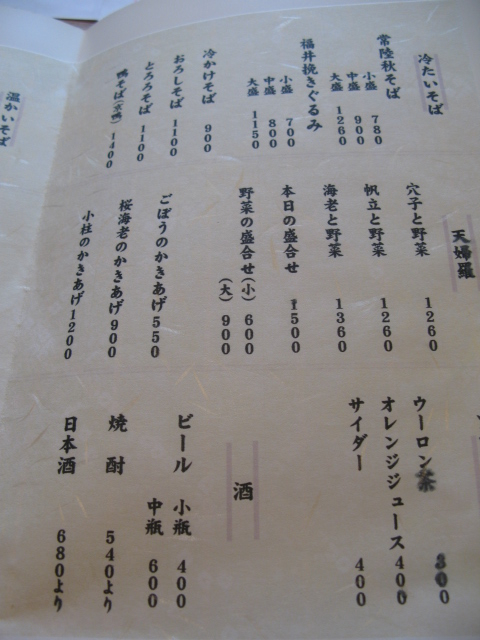 冷たいそば
常陸秋そば
小盛 780
中盛 900
大盛 1260
福井挽きぐるみ
小盛 700
中盛 800
大盛 1150
冷かけそば 900
おろしそば 1100
とろろそば 1100
鴨そば(京鴨) 1400
温かいそば
天婦羅
穴子と野菜 1260
帆立と野菜 1260
海老と野菜 1360
本日の盛合せ 1500
野菜の盛合せ(小) 600
(大) 900
ごぼうのかきあげ 550
桜海老のかきあげ 900
小柱のかきあげ 1200
ウーロン茶 300
オレンジジュース 400
サイダー 400
酒
ビール 小瓶 400
中瓶 600
焼酎 540より
日本酒 680より